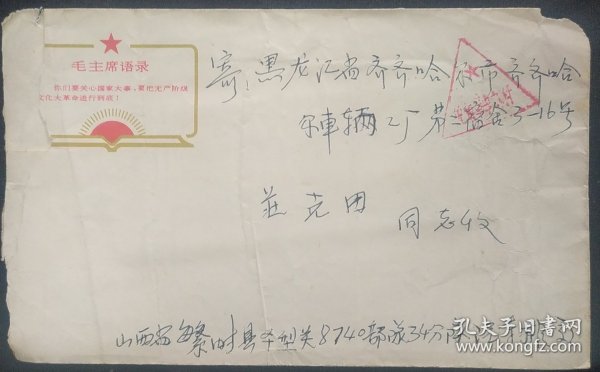 毛主席语录
你们要关心国家大事,要把无产阶级
文化大革命进行到底!
寄:黑龙江省齐齐哈尔市齐齐哈
尔车辆工厂第二宿舍3-16号
莊克田 同志收
山西省繁峙县平型关8740部队34分队
孔夫子旧书网
www.kongfz.com